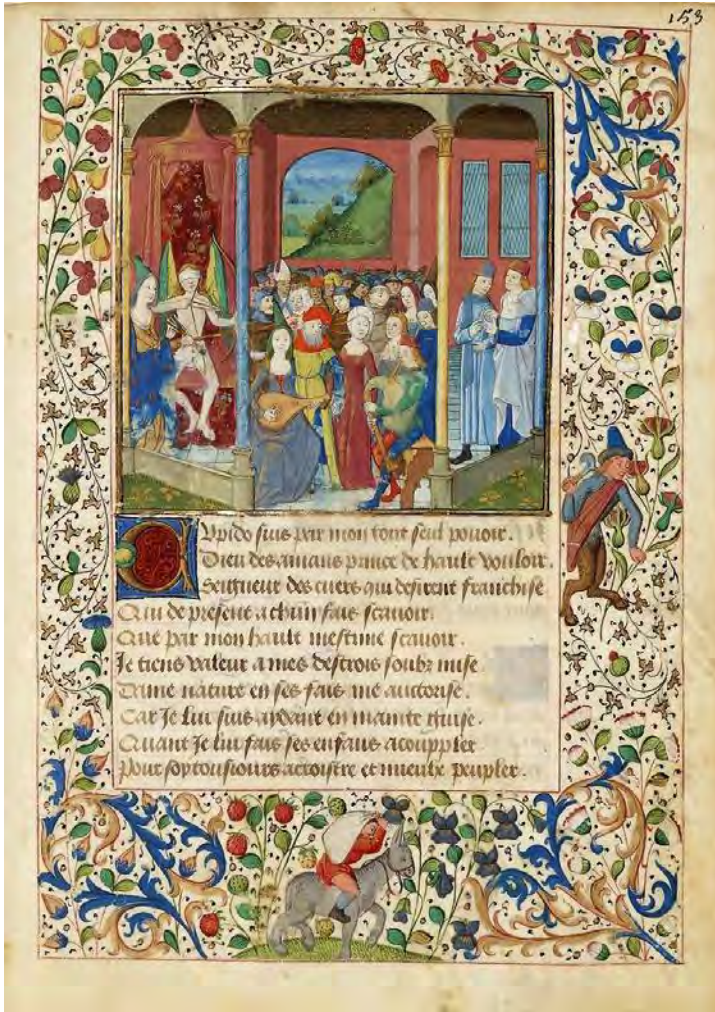 153
Cupido suis par mon tout seul povoir.
Dieu des amans prince de hault vouloir.
Seigneur des cuers qui desirent franchise
Qui de present a chun fais scavoir.
Que par mon hault mesme scavoir.
Je tiens valeur a mes destrois soubz mise.
Dame nature en ses fais me auctorise.
Car Je lui suis aydant en mainte guise.
Quant Je lui fais ses enfans acouppler
Pour soy tousiours accroistre et mieulx peupler.